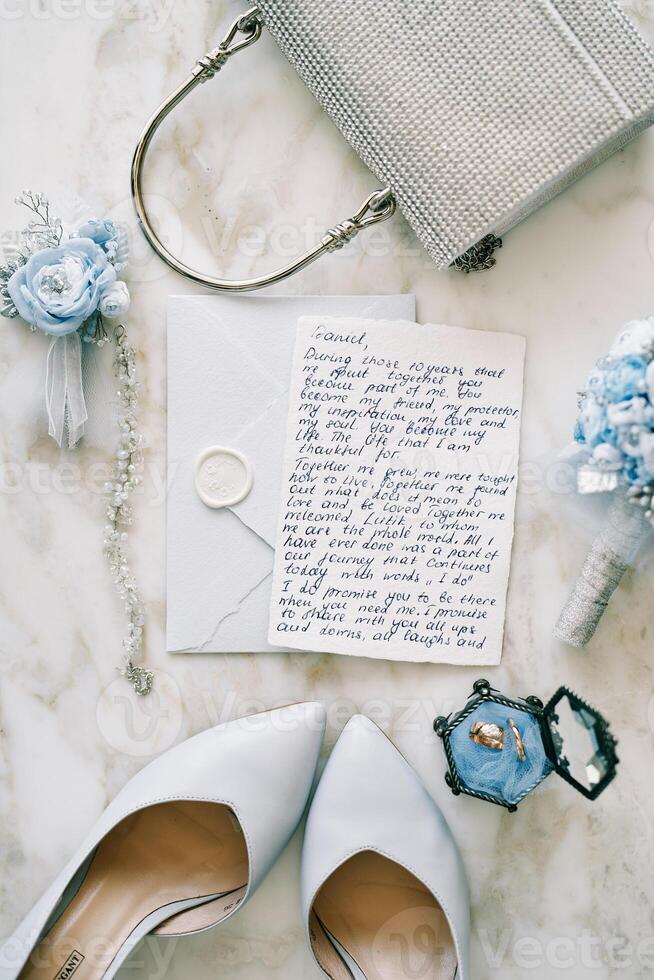 Daniel,
During those 10 years that
we spent together you
become part of me. You
become my friend, my protector,
my inspiration, my love and
my soul. You become my
life. The life that I am
thankful for.
Together we grew, we were tought
how to live. Together we found
out what does it mean to
love and be loved. Together we
welcomed to whom
we are the whole world. All I
have ever done was a part of
our journey that continues
today with words „I do"
I do promise you to be there
when you need me. I promise
to share with you all ups
and downs, all laughs and
EGANT
Vecteezy